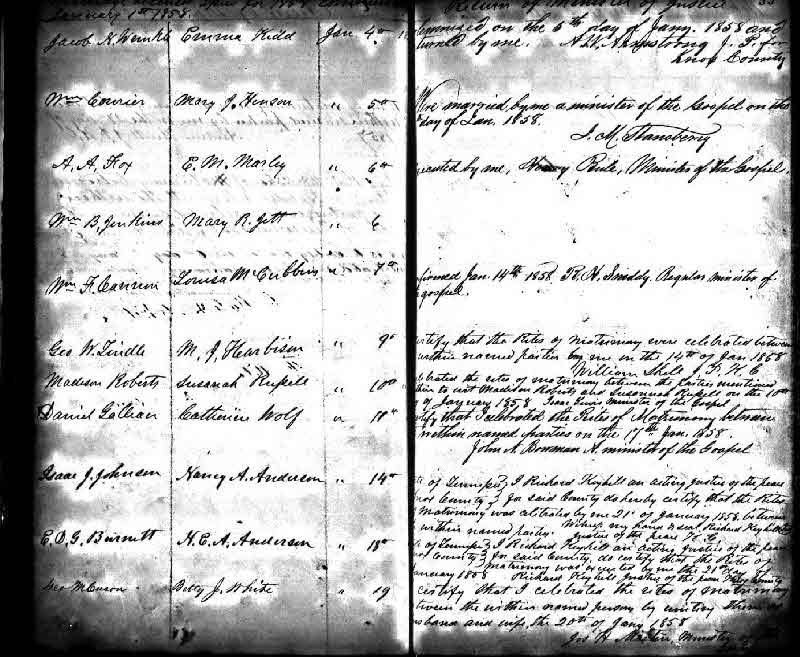 January 1st 1858.
Jacob K. Emma Kidd Jan 4th
solemnized on the 5th day of Jany. 1858 and
by me. A. W. Armstrong J. P. for
Knox County
Wm Courier Mary J. Henson " 5th
Were married by me a minister of the Gospel on the
day of Jan. 1858.
J. M. Stansberry
A. A. Fox E. M. Marley " 6th
executed by me, Rule, Minister of the Gospel.
Wm B. Jenkins Mary R. Jett " 6
Wm F. Cannon Louisa McCubbins " 7th
Jan. 14th 1858. R. H. Snoddy. Regular minister of
gospel.
Geo W. Lindle M. J. Harbison " 9th
certify that the Rites of matrimony were celebrated between
within named parties by me in the 14th of Jan 1858
William J. P. K. C
Madison Roberts Susanah " 10th
celebrated the rites of matrimony between the parties mentioned
to wit Madison Roberts and Susannah on the 10th
of January 1858 Minister of the Gospel
Daniel Catherine Wolf " 11th
that I celebrated the Rites of Matrimony between
within named parties on the 17th Jan. 1858.
John A. Bowman A. minister of the Gospel
Isaac J. Johnson Nancy A. Anderson " 14th
of Tennessee I Richard Keyhill an acting Justice of the peace
County for said County do hereby certify that the Rites
Matrimony was celebrated by me 21st of January 1858 between
within named parties. Witness my hand & seal Richard Keyhill
Justice of the peace K. C.
E. D. G. Burnett N. E. A. Anderson " 18th
of Tennessee I Richard Keyhill an acting Justice of the peace
County for said County do certify that the Rites of
matrimony was executed by me the 21st day of
January 1858 Richard Keyhill Justice of the peace Knox County
Betty J. White " 19
certify that I celebrated the rites of matrimony
between the within named persons by uniting them as
husband and wife, the 20th of Jany 1858
Jos H. Martin, Minister of the